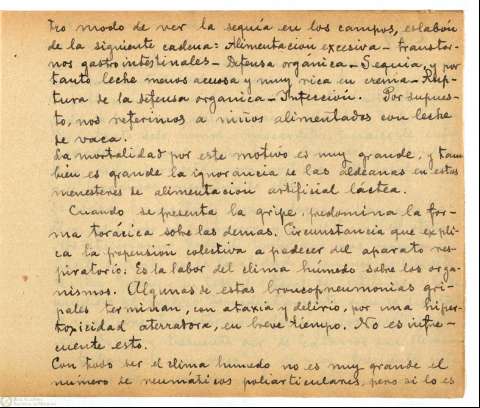 tro modo de ver la sequía en los campos, eslabón
de la siguiente cadena: Alimentacion excesiva - transtor-
nos gastrointestinales - Defensa orgánica - Sequía y por
tanto leche menos acuosa y muy rica en crema - Rup-
tura de la defensa organica - Infección. Por supues-
to, nos referimos a niños alimentados con leche
de vaca.
La mortalidad por este motivo es muy grande, y tam
bién es grande la ignorancia de las aldeanas en estos
menesteres de alimentación artificial láctea.
Cuando se presenta la gripe, predomina la for-
ma torácica sobre las demas. Circunstancia que expli-
ca la propensión colectiva a padecer del aparato res-
piratorio. Es la labor del clima húmedo sobre los orga-
nismos. Algunas de estas broncopneumonias gri-
pales terminan, con ataxia y delirio, por una hiper-
toxicidad aterradora, en breve tiempo. No es infre-
cuente esto.
Con todo ser el clima humedo no es muy grande el
número de reumáticos poliarticulares, pero si lo es